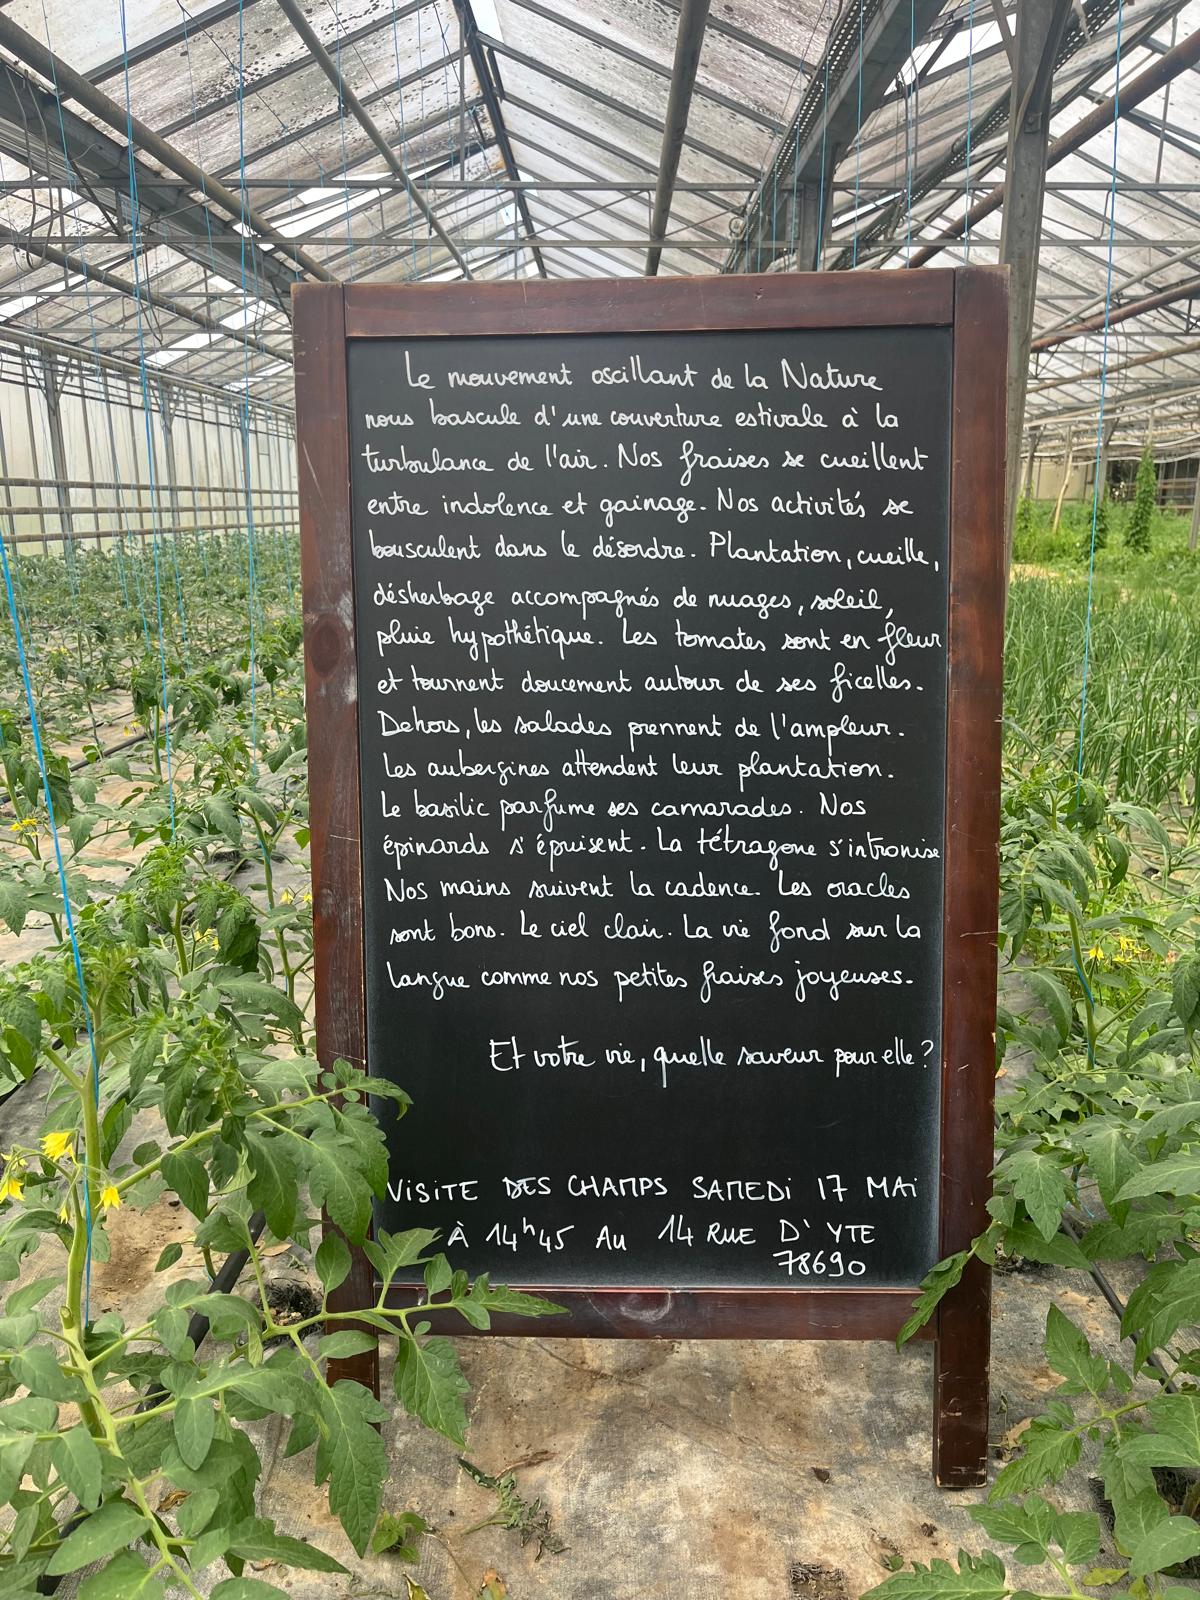 Le mouvement oscillant de la Nature
nous bascule d'une couverture estivale à la
turbulance de l'air. Nos fraises se cueillent
entre indolence et gainage. Nos activités se
bousculent dans le désordre. Plantation, cueille,
désherbage accompagnés de nuages, soleil,
pluie hypothétique. Les tomates sont en fleur
et tournent doucement autour de ses ficelles.
Dehors, les salades prennent de l'ampleur.
Les aubergines attendent leur plantation.
Le basilic parfume ses camarades. Nos
épinards s'épuisent. La tétragone s'intronise
Nos mains suivent la cadence. Les oracles
sont bons. Le ciel clair. La vie fond sur la
langue comme nos petites fraises joyeuses.
Et votre vie, quelle saveur pour elle ?
VISITE DES CHAMPS SAMEDI 17 MAI
À 14h45 AU 14 RUE D'YTE
78690